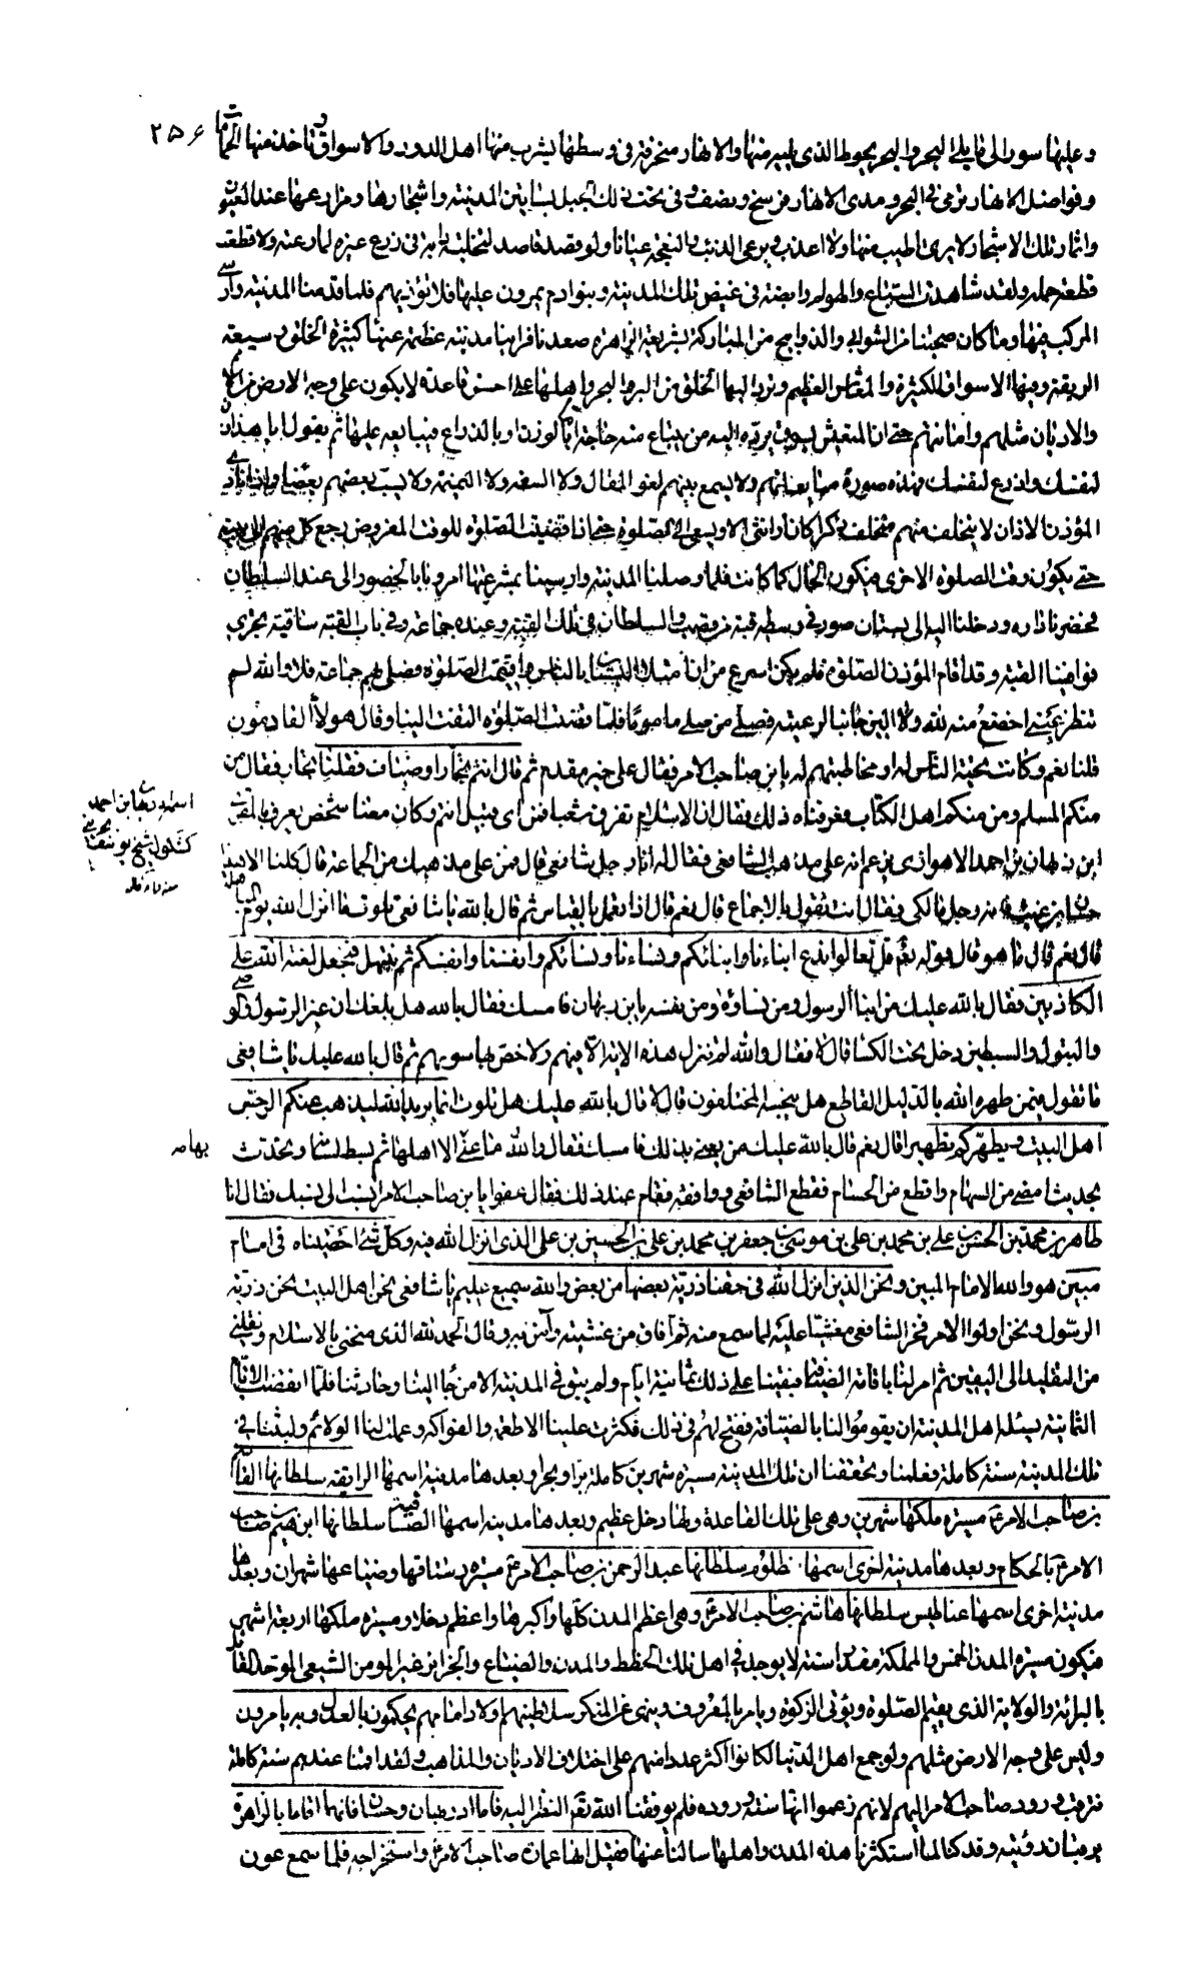 ۲۵۶
وعليها سور الى ما يلى البحر والبحر يحوط الذى يليه منها والانهار منحرفة فى وسطها يشرب منها اهل الدور والاسواق وتاخذ منها الحمامات
وفواضل الانهار ترمى فى البحر ومدى الانهار فرسخ ونصف وفى تحت ذلك الجبل بساتين المدينة واشجارها ومزارعها عند العيون
واثمار تلك الاشجار لا يرى اطيب منها ولا اعذب ويرعى الذئب والنعجة عيانا ولو قصد قاصد لتخلية دابة فى زرع غيره لما رعته ولا قطعت
قطعة حمله ولقد شاهدت السباع والهوام رابضة فى غيض تلك المدينة وبنوادم يمرون عليها فلا تؤذيهم فلما قدمنا المدينة وارسى
المركب فيها وما كان صحبنا من الشوابى والذوابيح من المباركة بشريعة الزاهرة صعدنا فراينا مدينة عظيمة عينا كثيرة الخلق وسيعة
الربقة وفيها الاسواق الكثيرة والمعاش العظيم وترد اليها الخلق من البر والبحر واهلها على احسن قاعدة لا يكون على وجه الارض من الامم
والاديان مثلهم وامانتهم حتى ان المتعيش بسوق يرده اليه من يبتاع منه حاجة اما بالوزن او بالذراع فيبايعه عليها ثم يقول يا هذا زن
لنفسك واذرع لنفسك فهذه صورة مبايعاتهم ولا يسمع بينهم لغو المقال ولا السفه ولا النميمة ولا يسب بعضهم بعضا واذا نادى
المؤذن الاذان لا يتخلف منهم متخلف ذكرا كان او انثى الا ويسعى الى الصلوة حتى اذا قضيت الصلوة للوقت المفروض رجع كل منهم الى بيته
حتى يكون وقت الصلوة الاخرى فيكون الحال كما كانت فلما وصلنا المدينة وارسينا بمشرعتها امرونا بالحضور الى عند السلطان
فحضرنا داره ودخلنا اليه الى بستان صور فى وسطه قبة من قصب والسلطان فى تلك القبة وعنده جماعة وفى باب القبة ساقية تجرى
فوافينا القبة وقد اقام المؤذن الصلوة فلم يكن اسرع من ان امتلا البستان بالناس واقيمت الصلوة فصلى بهم جماعة فلا والله لم
تنظر عينى اخضع منه لله ولا الين جانبا لرعيته فصلى من صلى ماموما فلما قضيت الصلوة التفت الينا وقال هولاء القادمون
قلنا نعم وكانت تحية الناس له او مخاطبتهم له يا بن صاحب الامر فقال على خير مقدم ثم قال انتم تجار او ضياف فقلنا تجار فقال من
منكم المسلم ومن منكم اهل الكتاب فعرفناه ذلك فقال ان الاسلام تفرق شعبا فمن اى قبيل انتم وكان معنا شخص يعرف بالمقرى
ابن دربهان بن احمد الاهوازى يزعم انه على مذهب الشافعى فقال له انا رجل شافعى قال فمن على مذهبك من الجماعة قال كلنا الا هذا
حسان بن غيث فانه رجل مالكى فقال انت تقول بالاجماع قال نعم قال اذا تعمل بالقياس ثم قال بالله يا شافعى تلوت ما انزل الله يوم المباهلة
قال نعم قال ما هو قال قوله تعالى قل تعالوا ندع ابناءنا وابنائكم ونساءنا ونسائكم وانفسنا وانفسكم ثم نبتهل فنجعل لعنة الله على
الكاذبين فقال بالله عليك من ابناء الرسول ومن نساؤه ومن نفسه يا بن دربهان فامسك فقال بالله هل بلغك ان غير الرسول والوصى
والبتول والسبطين دخل تحت الكساء قال لا فقال والله لم تنزل هذه الاية الا فيهم ولا خص بها سويهم ثم قال بالله عليك يا شافعى
ما تقول فيمن طهره الله بالدليل القاطع هل ينجسه المختلفون قال لا قال بالله عليك هل تلوت انما يريد الله ليذهب عنكم الرجس
اهل البيت ويطهركم تطهيرا قال نعم قال بالله عليك من يعنى بذلك فامسك فقال والله ما عنى الا اهلها ثم بسط لسانه وتحدث
بحديث امضى من السهام واقطع من الحسام فقطع الشافعى ووافقه فقام عند ذلك فقال عفوا يا بن صاحب الامر انسب الى نسبك فقال انا
طاهر بن محمد بن الحسن بن على بن محمد بن على بن موسى بن جعفر بن محمد بن على بن الحسين بن على الذى انزل الله فيه وكل شىء احصيناه فى امام
مبين هو والله الامام المبين ونحن الذين انزل الله فى حقنا ذرية بعضها من بعض والله سميع عليم يا شافعى نحن اهل البيت نحن ذرية
الرسول ونحن اولوا الامر فخر الشافعى مغشيا عليه لما سمع منه ثم افاق من غشيته وآمن به وقال الحمد لله الذى منحنى بالاسلام ونقلنى
من التقليد الى اليقين ثم امر لنا باقامة الضيافة فبقينا على ذلك ثمانية ايام ولم يبق فى المدينة الا من جاء الينا وحادثنا فلما انقضت الايام
الثمانية سئله اهل المدينة ان يقوموا لنا بالضيافة ففتح لهم فى ذلك فكثرت علينا الاطعمة والفواكه وعملت لنا الولائم ولبثنا فى
تلك المدينة سنة كاملة فعلمنا وتحققنا ان تلك المدينة مسيرة شهرين كاملة برا وبحرا وبعدها مدينة اسمها الرايقة سلطانها القاسم
بن صاحب الامر ع مسيرة ملكها شهرين وهى على تلك القاعدة ولها دخل عظيم وبعدها مدينة اسمها الصافية سلطانها ابراهيم بن صاحب
الامر ع بالحكام وبعدها مدينة اخرى اسمها ظلوم سلطانها عبد الرحمن بن صاحب الامر ع مسيرة رستاقها وضياعها شهران وبعدها
مدينة اخرى اسمها عناطيس سلطانها هاشم بن صاحب الامر ع وهى اعظم المدن كلها واكبرها واعظم دخلا ومسيرة ملكها اربعة اشهر
فيكون مسيرة المدن الخمس والمملكة مقدار سنة لا يوجد فى اهل تلك الخطط والمدن والضياع والجزاير غير المومن الشيعى الموحد القائل
بالبرائة والولاية الذى يقيم الصلوة ويؤتى الزكوة ويامر بالمعروف وينهى عن المنكر سلاطينهم اولاد امامهم يحكمون بالعدل وبه يامرون
وليس على وجه الارض مثلهم ولو جمع اهل الدنيا لكانوا اكثر عددا منهم على اختلاف الاديان والمذاهب ولقد اقمنا عندهم سنة كاملة
نترقب ورود صاحب الامر اليهم لانهم زعموا انها سنة وروده فلم يوفقنا الله تعالى للنظر اليه فاما ابن دربهان وحسان فانهما اقاما بالزاهرة
يرقبان رؤيته وقد كنا لما استكثرنا هذه المدن واهلها سالنا عنها فقيل انها عمارة صاحب الامر ع واستخراجه فلما سمع عون
دربهان بن احمد
كشكول شيخ يوسف بحرينى
بهامه